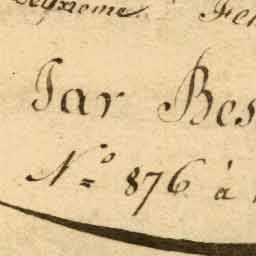 Deuxieme Fe
Par Bes
Nº 876 à